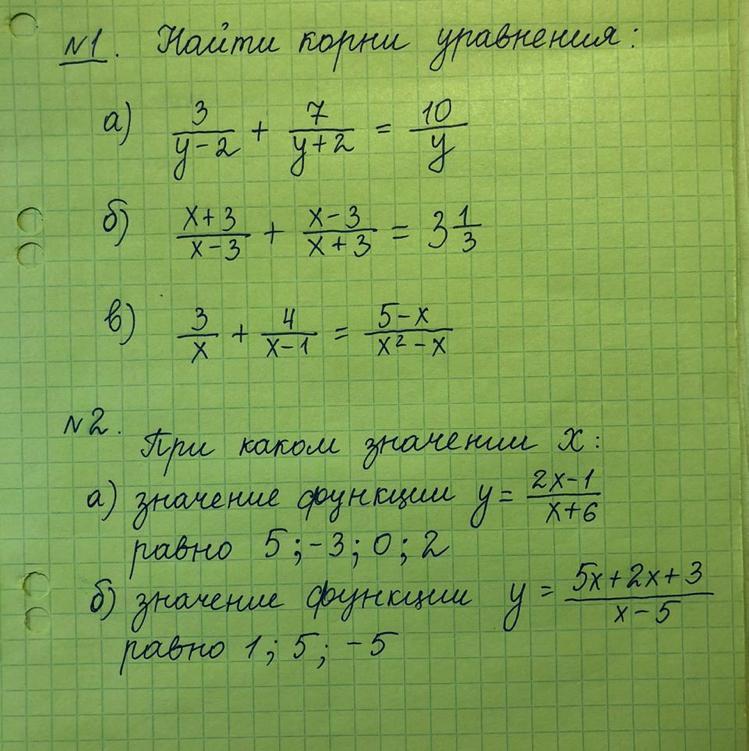 №1. Найти корни уравнения:
а) 3/(y-2) + 7/(y+2) = 10/y
б) (x+3)/(x-3) + (x-3)/(x+3) = 3 1/3
в) 3/x + 4/(x-1) = (5-x)/(x²-x)
№2. При каком значении x:
а) значение функции y = (2x-1)/(x+6)
равно 5; -3; 0; 2
б) значение функции y = (5x+2x+3)/(x-5)
равно 1; 5; -5